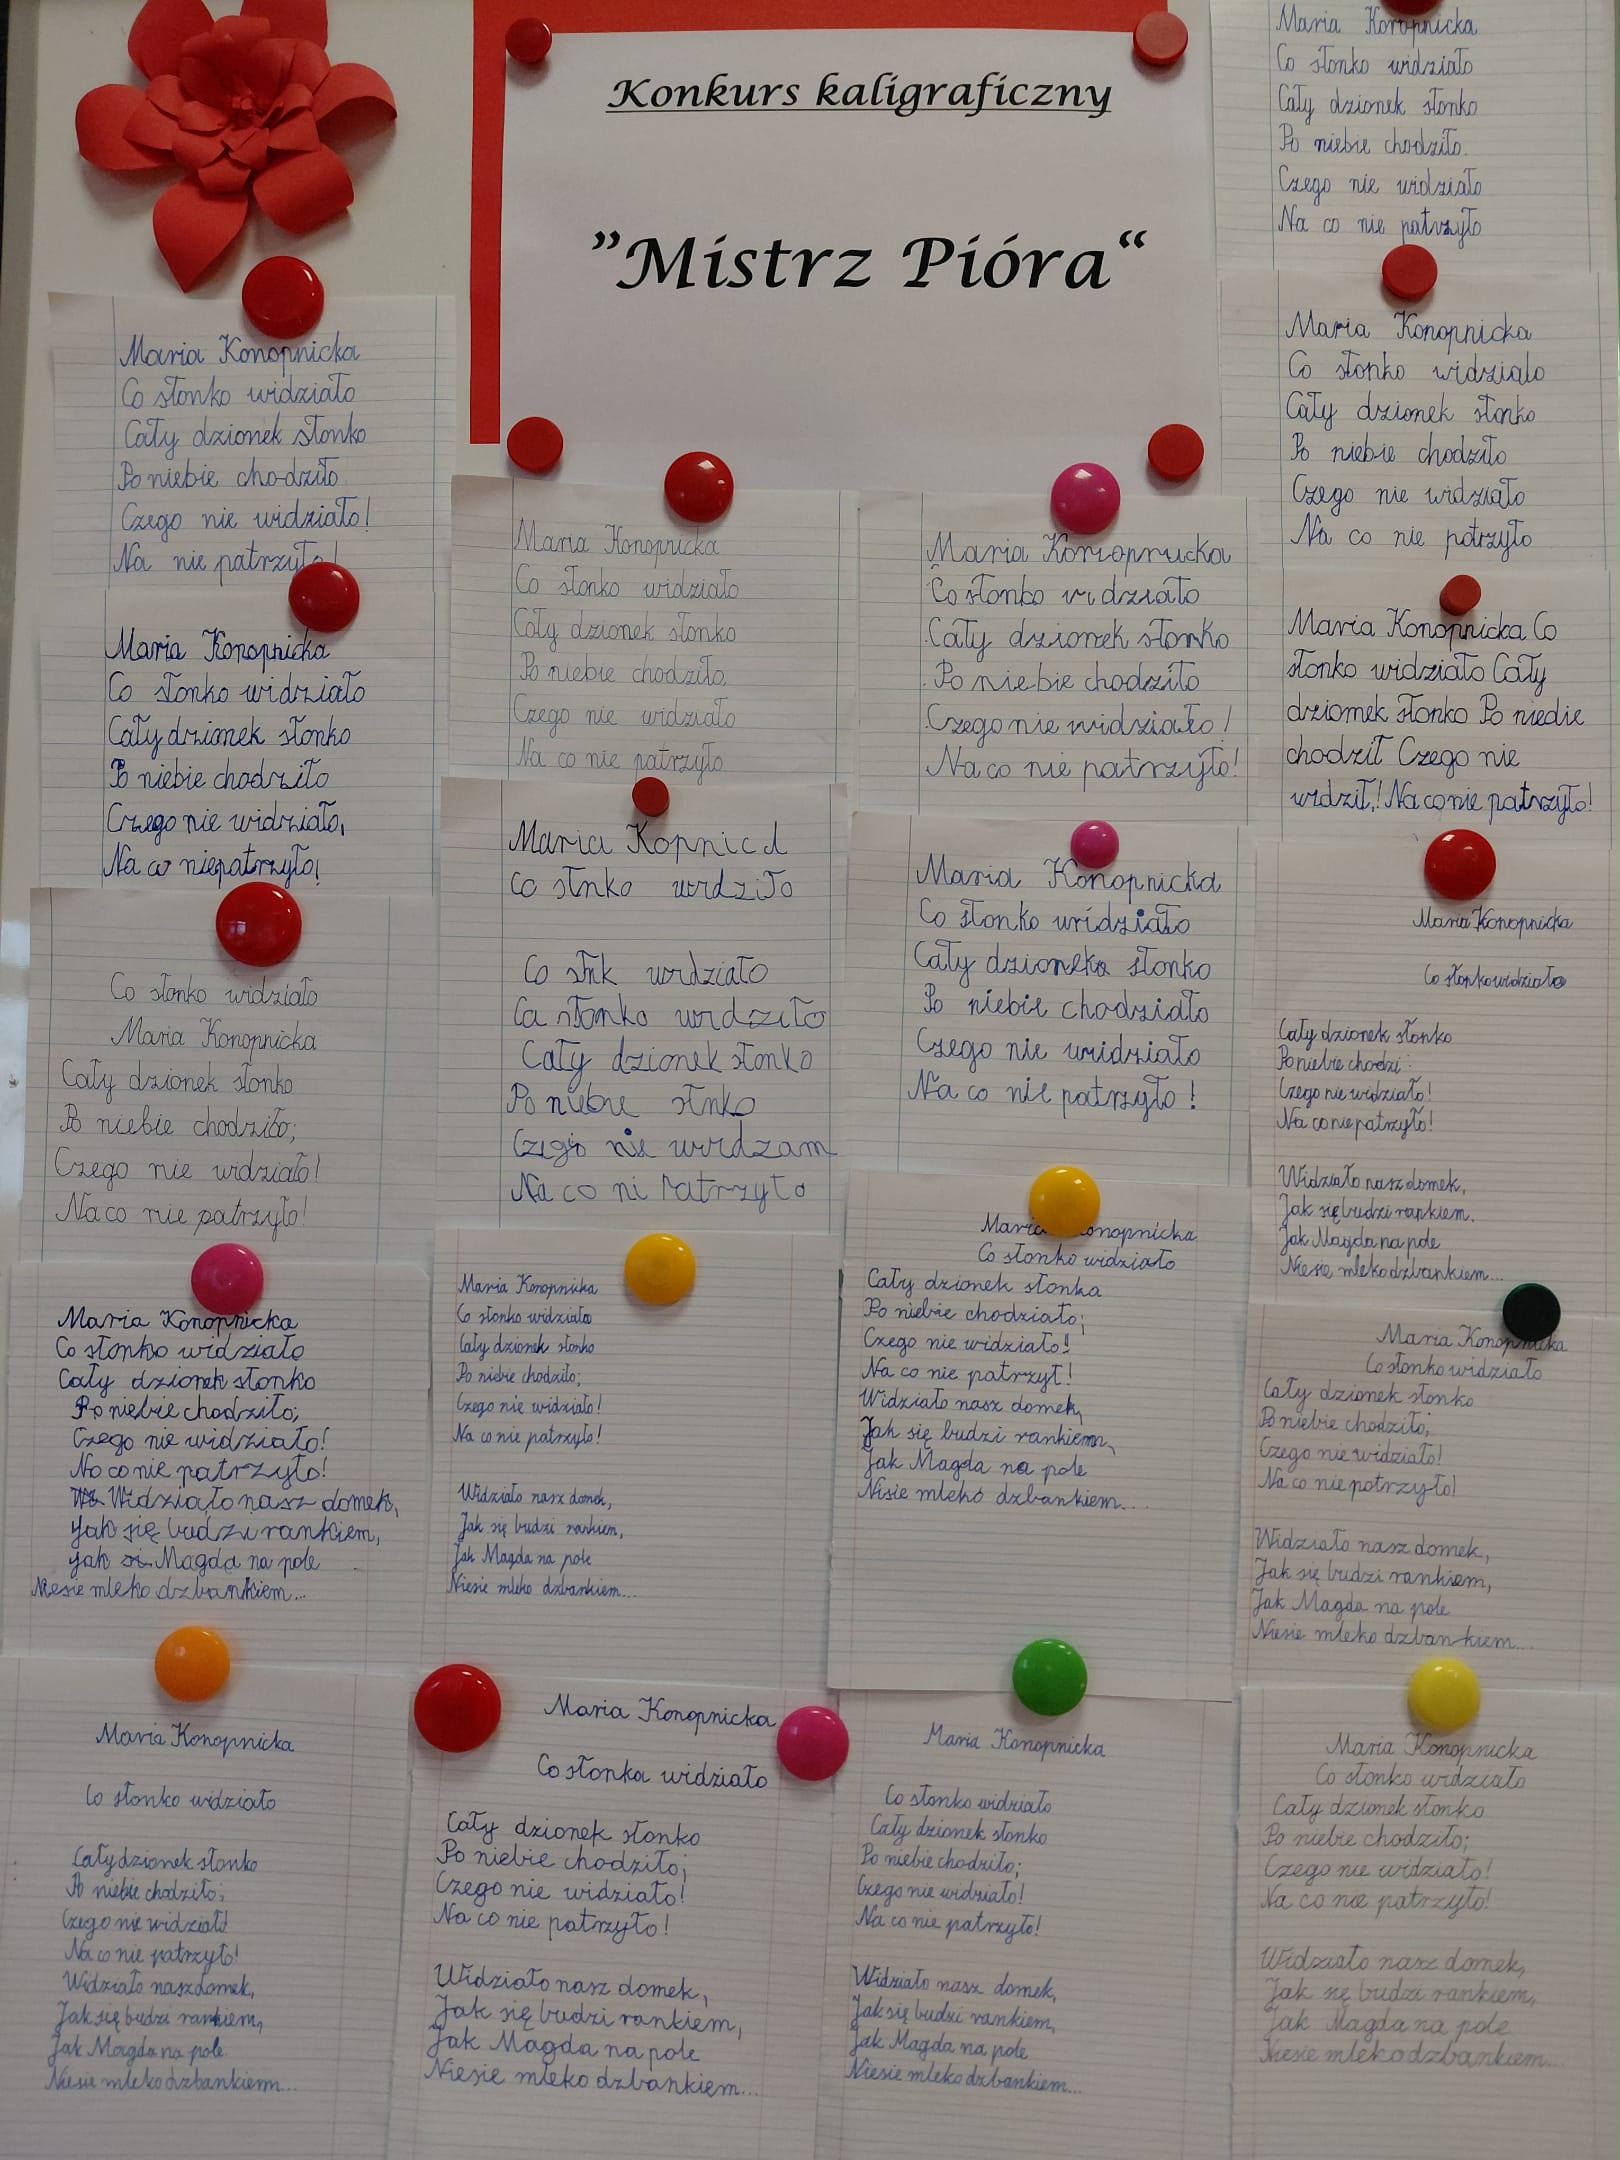 Konkurs kaligraficzny
"Mistrz Pióra"
Maria Konopnicka
Co słonko widziało
Cały dzionek słonko
Po niebie chodziło
Czego nie widziało!
Na nie patrzyło!
Maria Konopnicka
Co słonko widziało
Cały dzionek słonko
Po niebie chodziło
Czego nie widziało,
Na co niepatrzyło!
Co słonko widziało
Maria Konopnicka
Cały dzionek słonko
Po niebie chodziło;
Czego nie widziało!
Na co nie patrzyło!
Maria Konopnicka
Co słonko widziało
Cały dzionek słonko
Po niebie chodziło;
Czego nie widziało!
No co nie patrzyło!
Widziało nasz domek,
Jak się budzi rankiem,
jak Magda na pole
Niesie mleko dzbankiem...
Maria Konopnicka
Co słonko widziało
Cały dzionek słonko
Po niebie chodziło;
Czego nie widziało!
Na co nie patrzyło!
Widziało nasz domek,
Jak się budzi rankiem,
Jak Magda na pole
Niesie mleko dzbankiem...
Maria Konopnicka
Co słonko widziało
Cały dzionek słonko
Po niebie chodziło,
Czego nie widziało
Na co nie patrzyło
Maria Kopnicd
Co słnko widziło
Co słnk widziało
Ca słonko widziło
Cały dzionek słonko
Po niebie słnko
Czego nie widzam
Na co ni Patrzyło
Maria Konopnicka
Co słonko widziało
Cały dzionek słonko
Po niebie chodziło;
Czego nie widziało!
Na co nie patrzyło!
Widziało nasz domek,
Jak się budzi rankiem,
Jak Magda na pole
Niesie mleko dzbankiem...
Maria Konopnicka
Co słonka widziało
Cały dzionek słonko
Po niebie chodziło;
Czego nie widziało!
Na co nie patrzyło!
Widziało nasz domek,
Jak się budzi rankiem,
Jak Magda na pole
Niesie mleko dzbankiem...
Maria Konopnicka
Co słonko widziało
Cały dzionek słonko
Po niebie chodziło
Czego nie widziało!
Na co nie patrzyło!
Maria Konopnicka
Co słonko widziało
Cały dzioneko słonko
Po niebie chodziało
Czego nie widziało
Na co nie patrzyło!
Maria onopnicka
Co słonko widziało
Cały dzionek słonka
Po niebie chodziało;
Czego nie widziało!
Na co nie patrzył!
Widziało nasz domek,
Jak się budzi rankiem,
Jak Magda na pole
Nisie mleko dzbankiem...
Maria Konopnicka
Co słonko widziało
Cały dzionek słonko
Po niebie chodziło;
Czego nie widziało!
Na co nie patrzyło!
Widziało nasz domek,
Jak się budzi rankiem,
Jak Magda na pole
Niesie mleko dzbankiem...
Maria Konopnicka
Co słonko widziało
Cały dzionek słonko
Po niebie chodziło.
Czego nie widziało
Na co nie patrzyło
Maria Konopnicka
Co słonko widziało
Cały dzionek słonko
Po niebie chodziło
Czego nie widziało
Na co nie patrzyło
Maria Konopnicka Co
słonko widziało Cały
dziomek słonko Po niedie
chodził Czego nie
widził,! Na co nie patrzyło!
Maria Konopnicka
Co słonko widziało
Cały dzionek słonko
Po niebie chodzi
Czego nie widziało!
Na co nie patrzyło!
Widziało nasz domek,
Jak się budzi rankiem.
Jak Magda na pole
Niesie mleko dzbankiem...
Maria Konopnicka
Co słonko widziało
Cały dzionek słonko
Po niebie chodziło;
Czego nie widziało!
Na co nie potrzyło!
Widziało nasz domek,
Jak się budzi rankiem,
Jak Magda na pole
Niesie mleko dzbankiem...
Maria Konopnicka
Co słonko widziało
Cały dzionek słonko
Po niebie chodziło;
Czego nie widziało!
Na co nie patrzyło!
Widziało nasz domek,
Jak się budzi rankiem,
Jak Magda na pole
Niesie mleko dzbankiem...